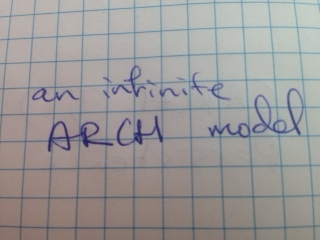 an infinite
ARCH model